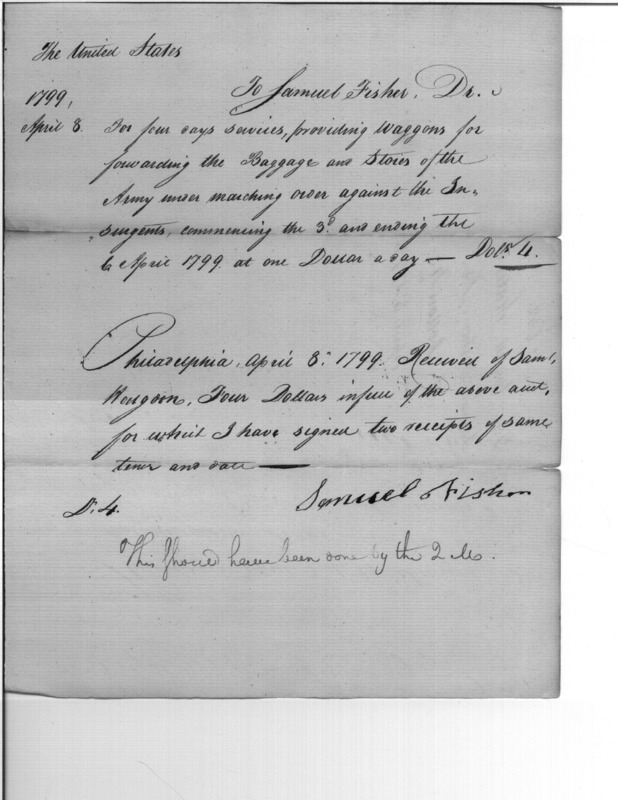 The United States
To Samuel Fisher, Dr.
1799,
April 8. For four days services, providing Waggons for
forwarding the Baggage and Stores of the
Army under marching order against the In=
=surgents, commencing the 3d. and ending the
6 April 1799. at one Dollar a day — Dolrs. 4.
Philadelphia, April 8. 1799. Received of Saml.
Hodgdon, Four Dollars in full of the above acct.
for which I have signed two receipts of same
tenor and date —
Samuel Fisher
D. 4.
This should have been done by the Q M.